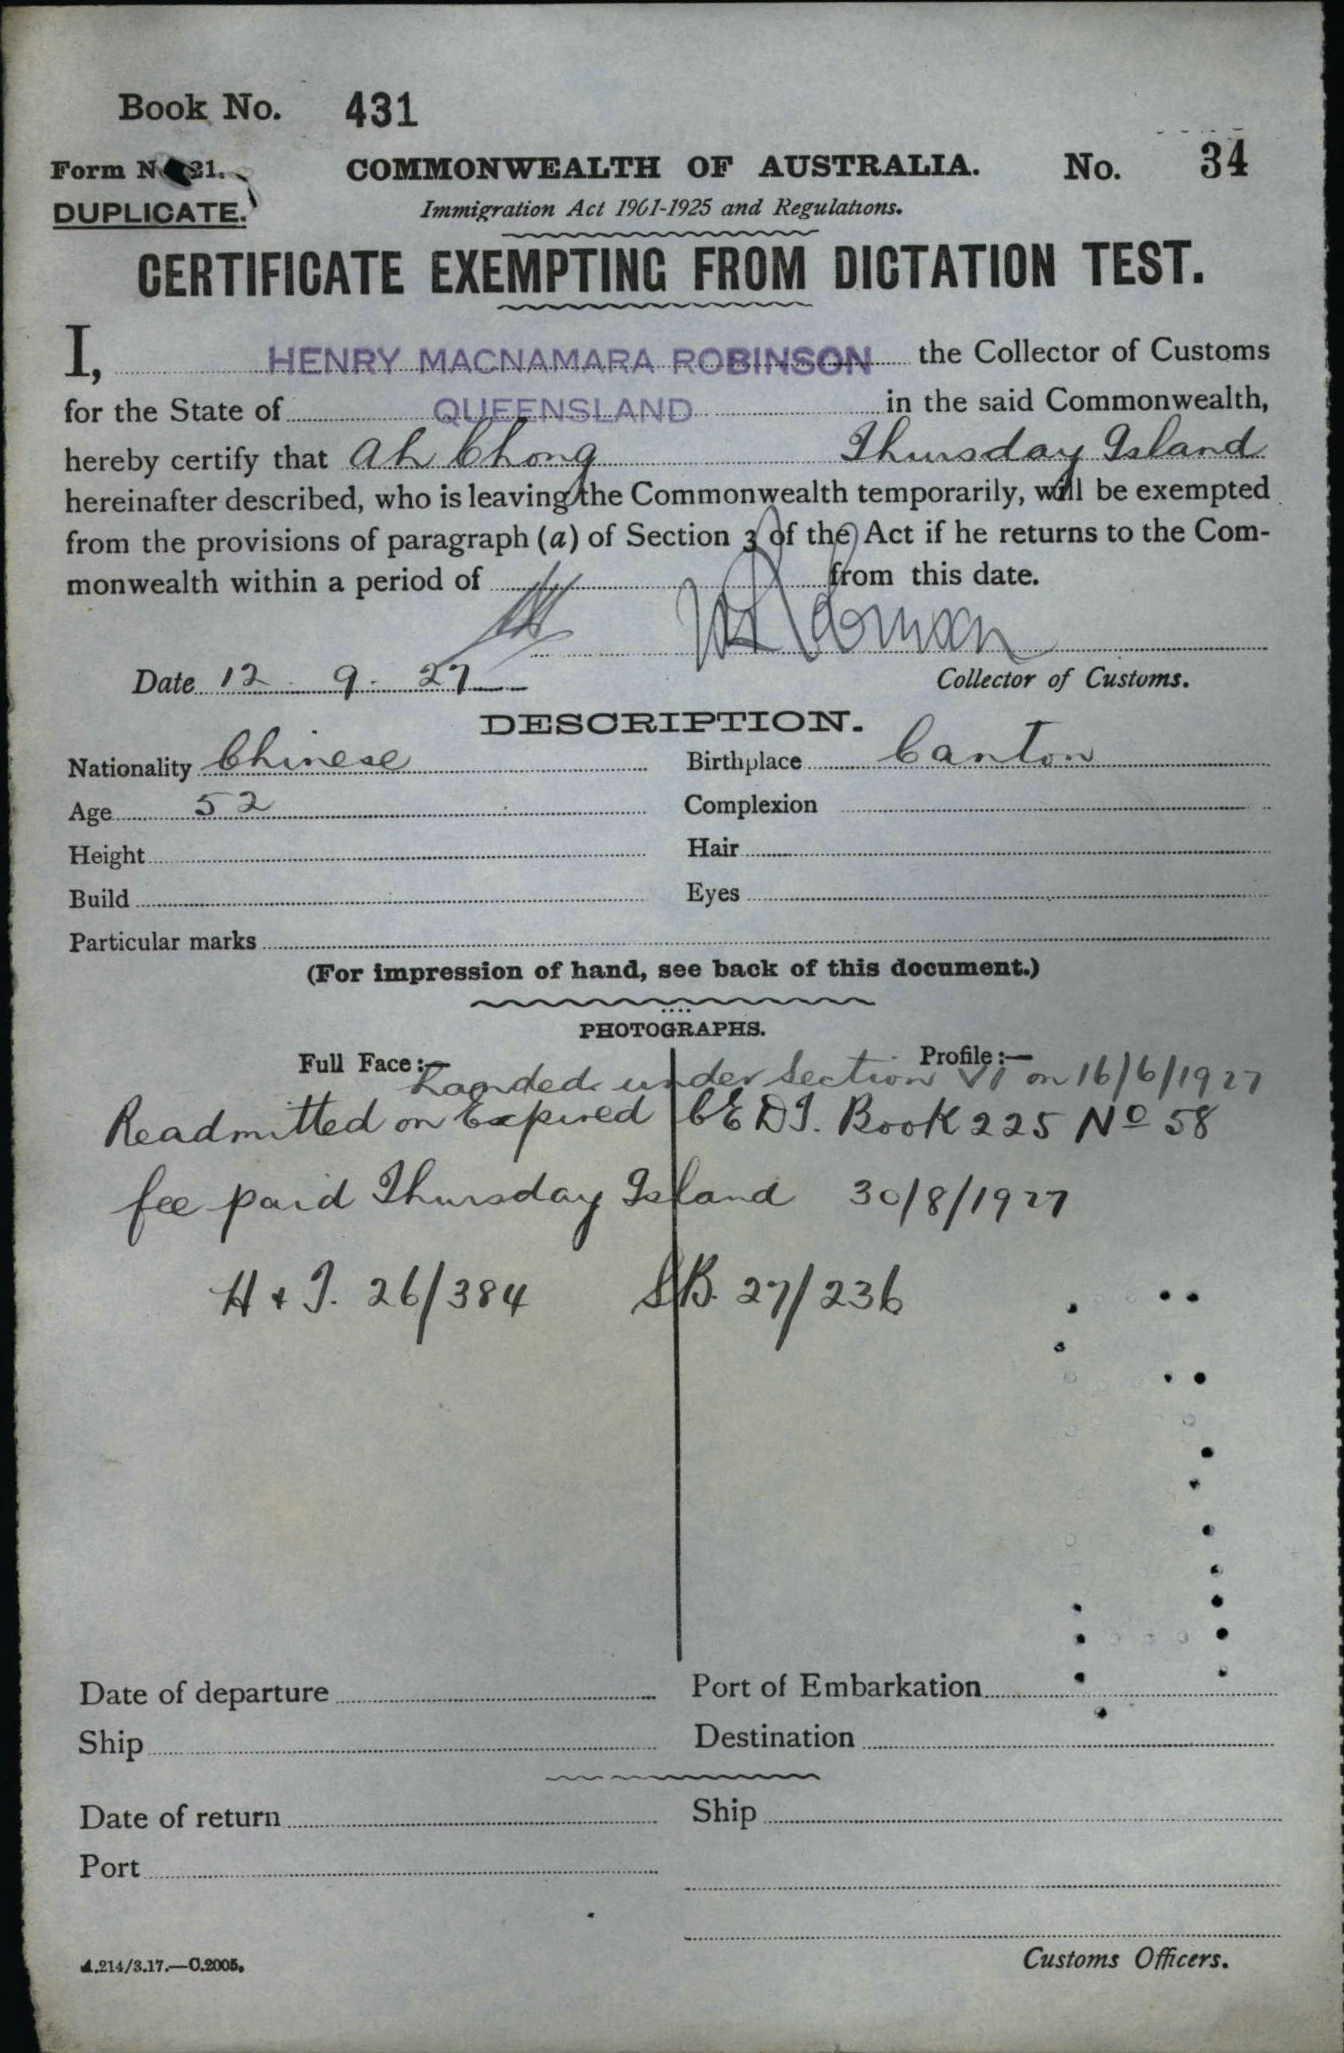 Book No. 431
Form No. 21. COMMONWEALTH OF AUSTRALIA. No. 34
DUPLICATE. Immigration Act 1901-1925 and Regulations.
CERTIFICATE EXEMPTING FROM DICTATION TEST.
I, HENRY MACNAMARA ROBINSON the Collector of Customs
for the State of QUEENSLAND in the said Commonwealth,
hereby certify that Ah Chong Thursday Island
hereinafter described, who is leaving the Commonwealth temporarily, will be exempted
from the provisions of paragraph (a) of Section 3 of the Act if he returns to the Com-
monwealth within a period of from this date.
Date 12. 9. 27 Collector of Customs.
DESCRIPTION.
Nationality Chinese Birthplace Canton
Age 52 Complexion
Height Hair
Build Eyes
Particular marks
(For impression of hand, see back of this document.)
PHOTOGRAPHS.
Full Face:— Profile:—
Landed under Section VI on 16/6/1927
Readmitted on Expired CEDT. Book 225 No 58
fee paid Thursday Island 30/8/1927
H & T. 26/384 SB. 27/236
Date of departure Port of Embarkation
Ship Destination
Date of return Ship
Port
A.214/3.17.—C.2005. Customs Officers.